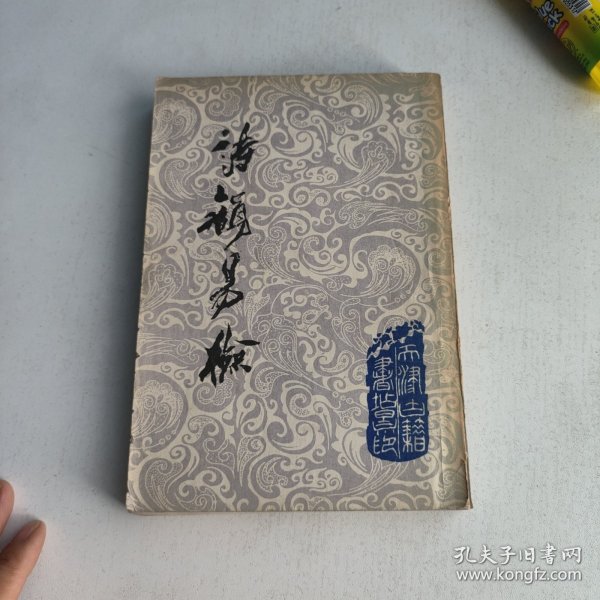 詩韻易檢
天津古籍
書店景印
孔夫子旧书网
www.kongfz.com